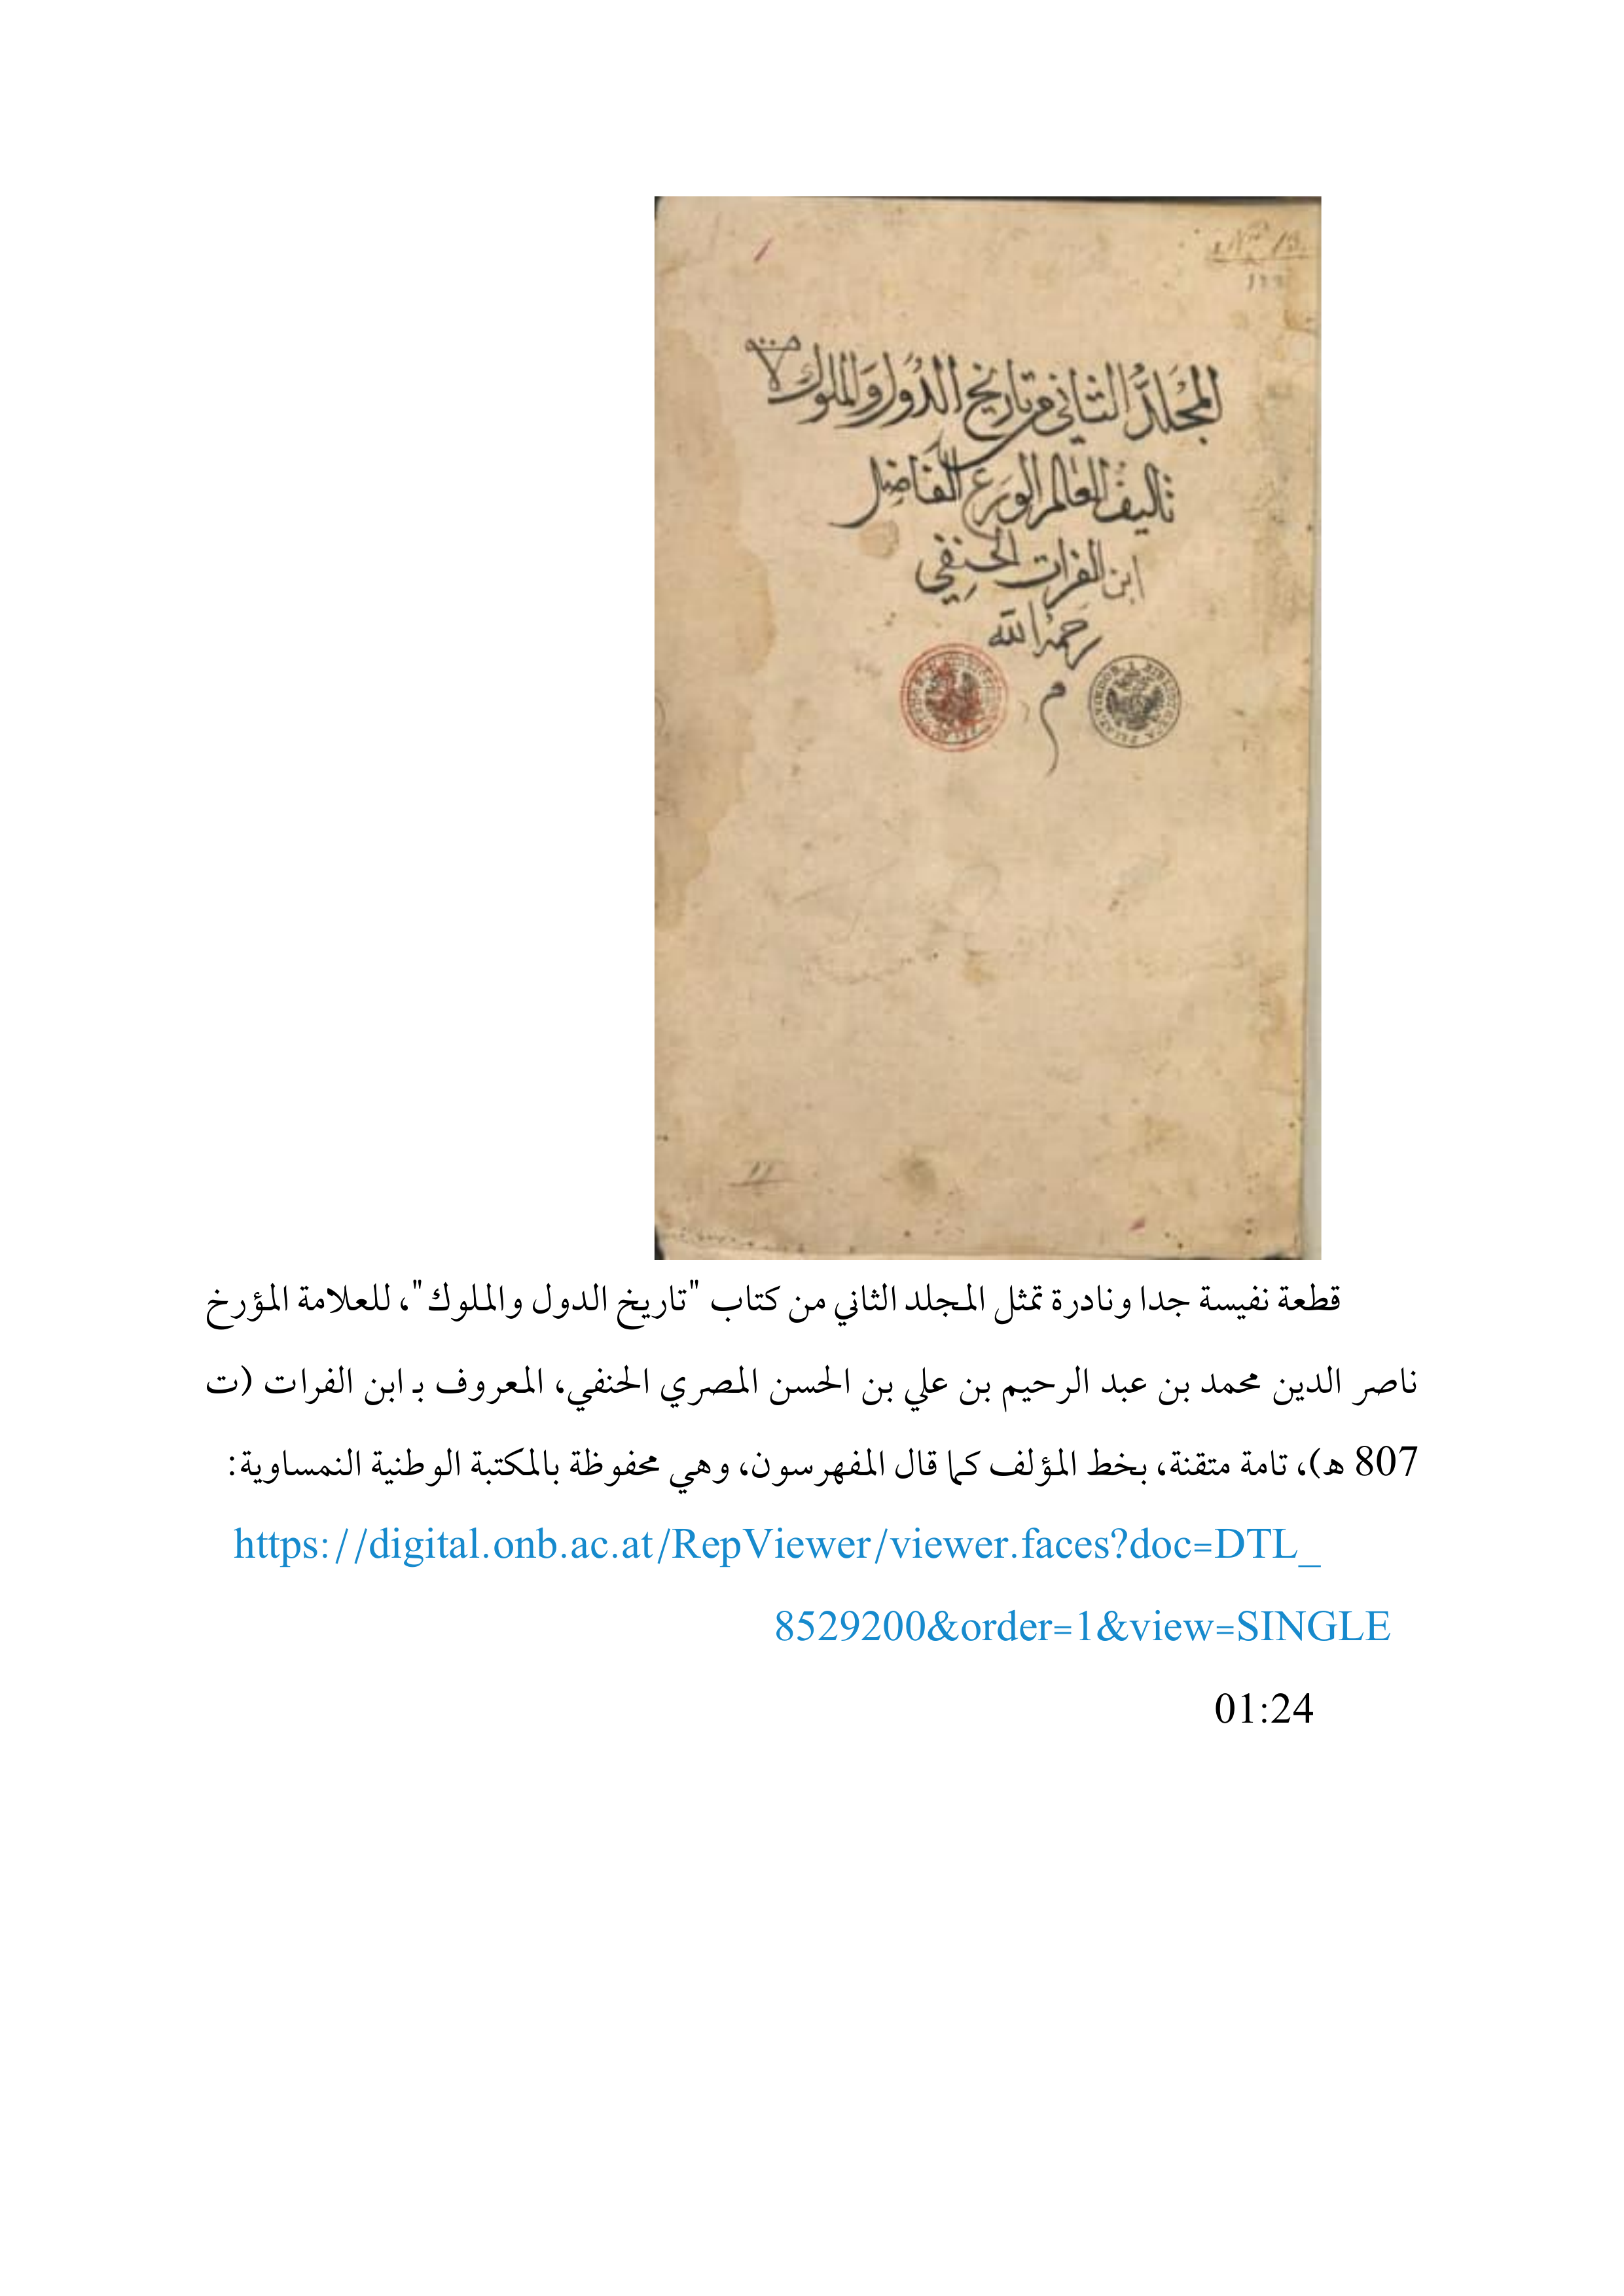 المجلد الثاني من تاريخ الدول والملوك
تاليف العالم الورع الفاضل
ابن الفرات الحنفي
رحمه الله
م
قطعة نفيسة جدا ونادرة تمثل المجلد الثاني من كتاب "تاريخ الدول والملوك"، للعلامة المؤرخ
ناصر الدين محمد بن عبد الرحيم بن علي بن الحسن المصري الحنفي، المعروف بـ ابن الفرات (ت
807 هـ)، تامة متقنة، بخط المؤلف كما قال المفهرسون، وهي محفوظة بالمكتبة الوطنية النمساوية:
https://digital.onb.ac.at/RepViewer/viewer.faces?doc=DTL_
8529200&order=1&view=SINGLE
01:24